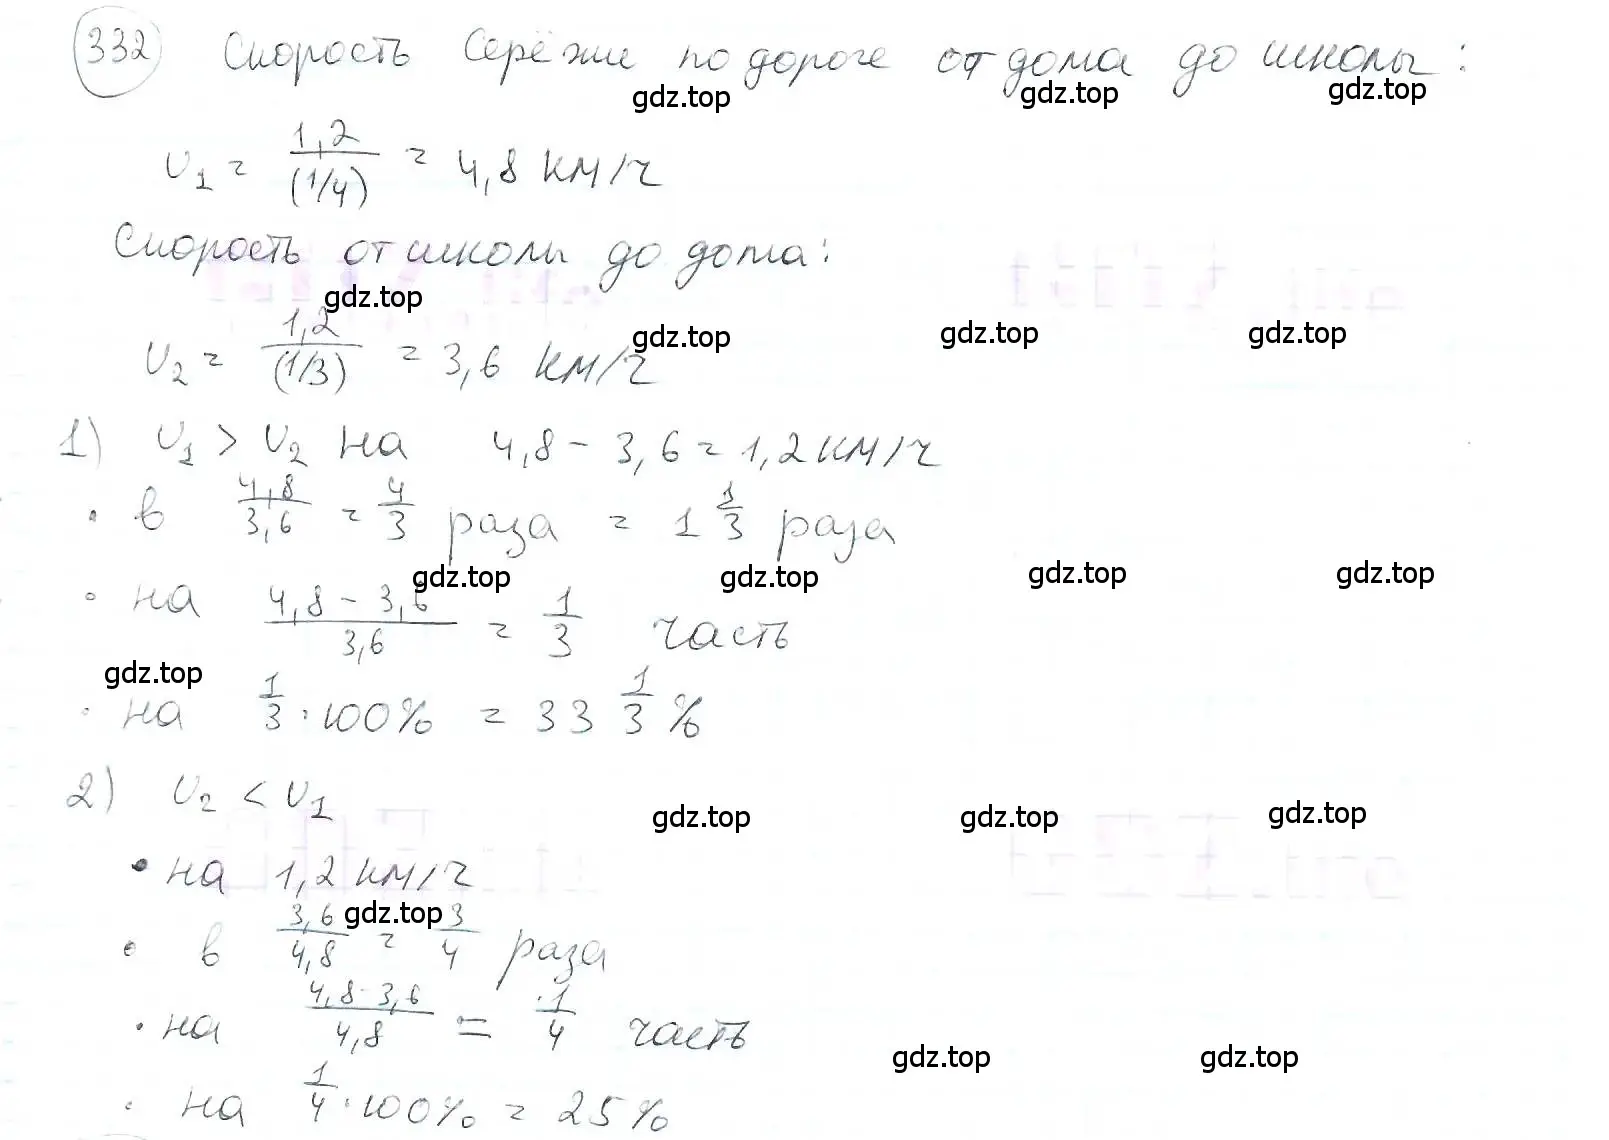 332 Скорость Серёжи по дороге от дома до школы:
gdz.top gdz.top gdz.top
υ1 = 1,2/(1/4) = 4,8 км/ч
Скорость от школы до дома:
gdz.top
υ2 = 1,2/(1/3) = 3,6 км/ч
gdz.top gdz.top gdz.top
1) υ1 > υ2 на 4,8 - 3,6 = 1,2 км/ч
• в 4,8/3,6 = 4/3 раза = 1 1/3 раза
gdz.top gdz.top gdz.top gdz.top
• на (4,8 - 3,6)/3,6 = 1/3 часть
gdz.top
• на 1/3 · 100% = 33 1/3 %
2) υ2 < υ1
gdz.top gdz.top gdz.top
• на 1,2 км/ч
gdz.top
• в 3,6/4,8 = 3/4 раза
• на (4,8 - 3,6)/4,8 = 1/4 часть
gdz.top gdz.top
• на 1/4 · 100% = 25%